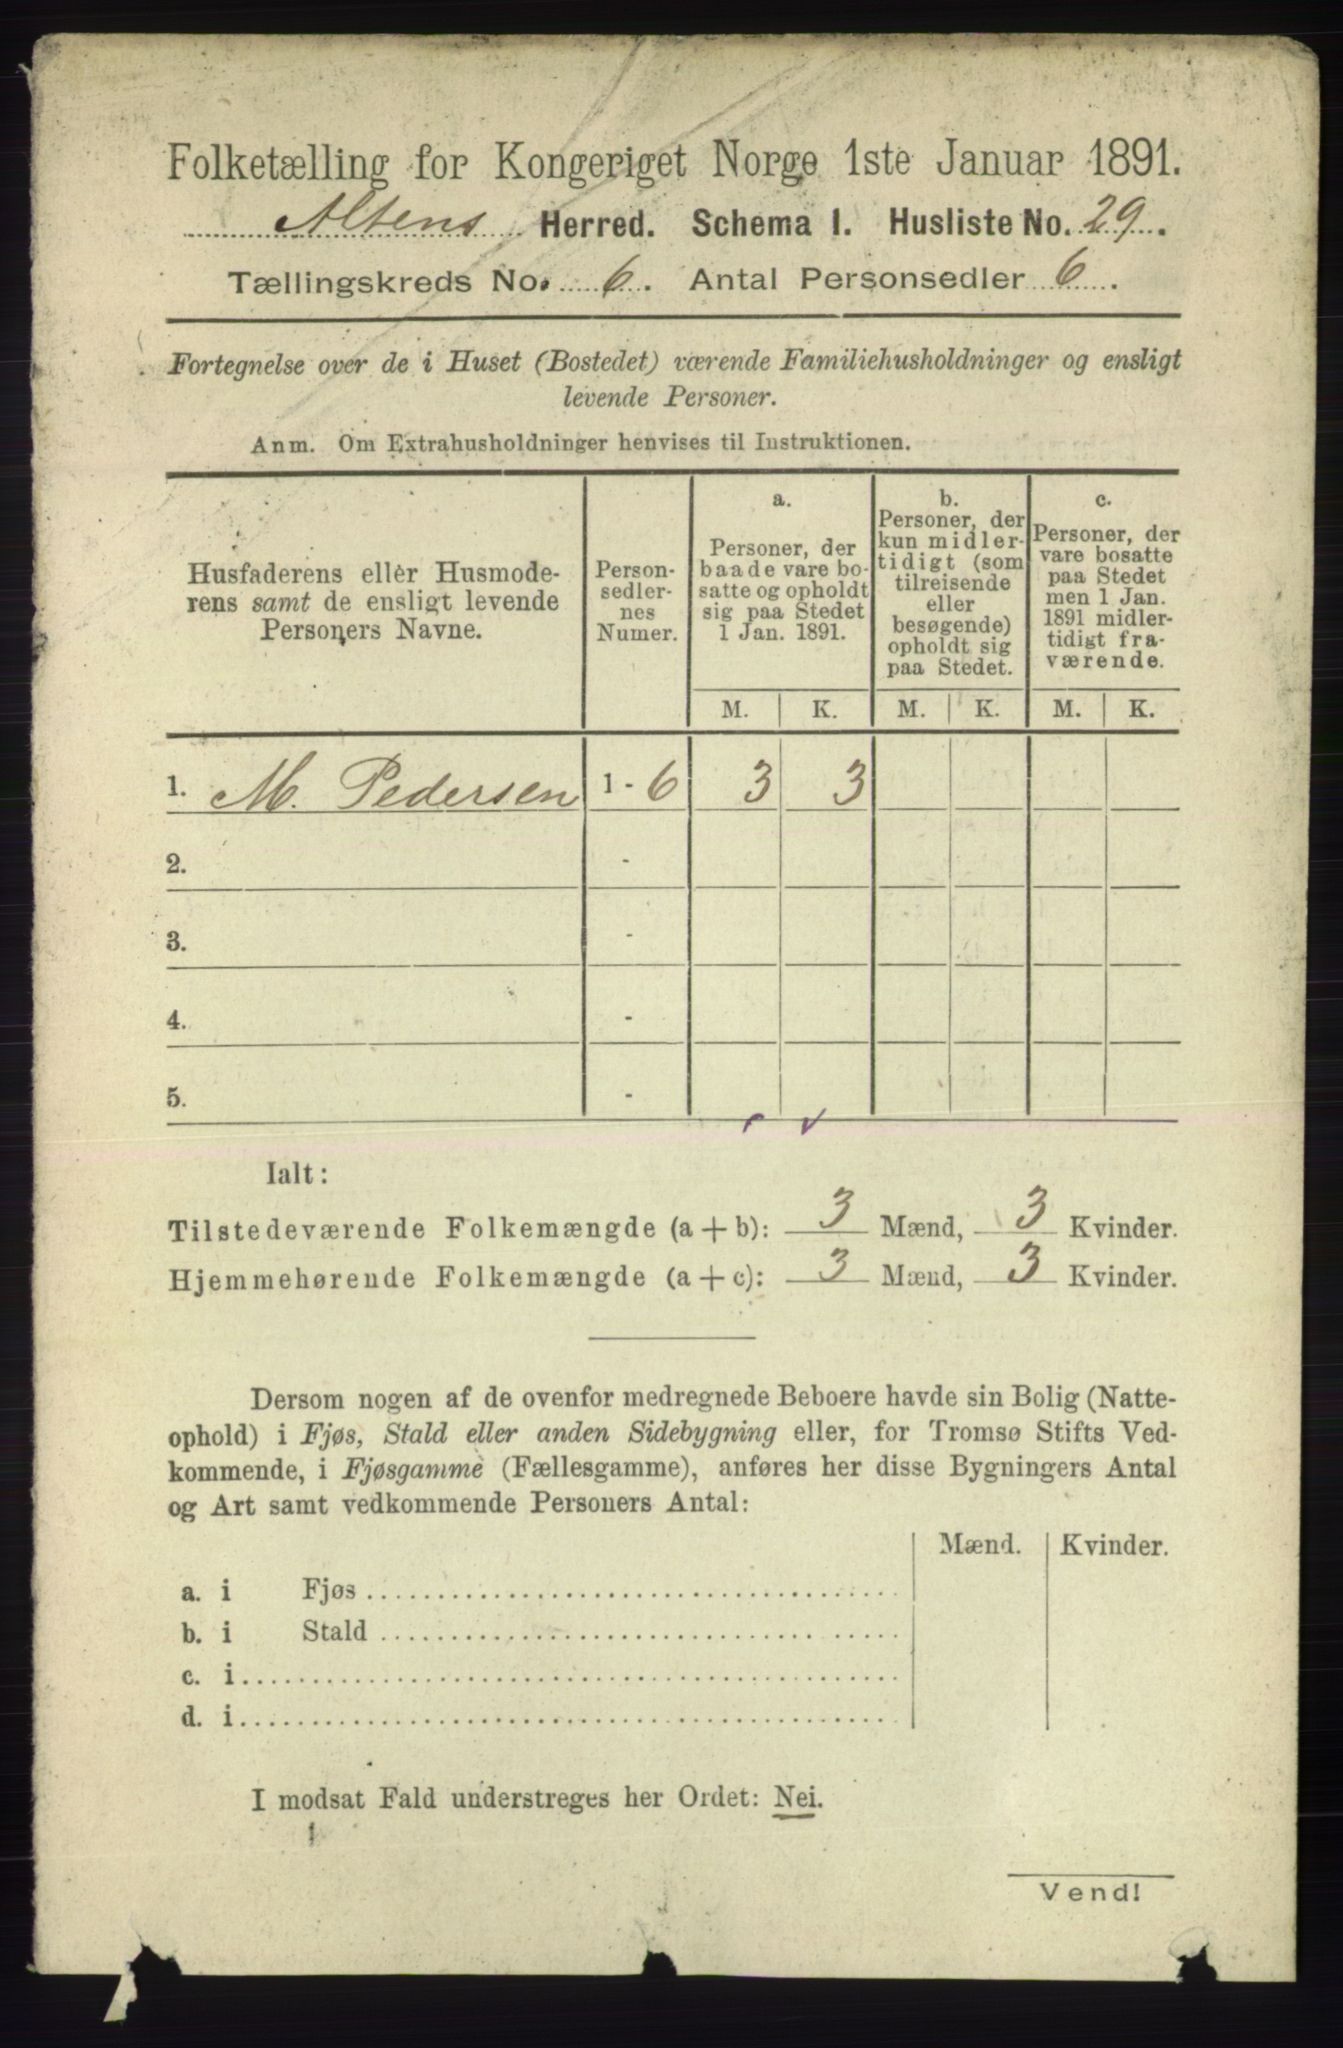 Folketælling for Kongeriget Norge 1ste Januar 1891.
Altens Herred. Schema I. Husliste No. 29.
Tællingskreds No. 6. Antal Personsedler 6.
Fortegnelse over de i Huset (Bostedet) værende Familiehusholdninger og ensligt
levende Personer.
Anm. Om Extrahusholdninger henvises til Instruktionen.
Husfaderens eller Husmode-
rens samt de ensligt levende
Personers Navne.
Person-
sedler-
nes
Numer.
a.
Personer, der
baade vare bo-
satte og opholdt
sig paa Stedet
1 Jan. 1891.
b.
Personer, der
kun midler-
tidigt (som
tilreisende
eller
besøgende)
opholdt sig
paa Stedet.
c.
Personer, der
vare bosatte
paa Stedet
men 1 Jan.
1891 midler-
tidigt fra-
værende.
M. K. M. K. M. K.
1. M. Pedersen 1 - 6 3 3
2. -
3. -
4. -
5. -
Ialt:
Tilstedeværende Folkemængde (a + b): 3 Mænd, 3 Kvinder.
Hjemmehørende Folkemængde (a + c): 3 Mænd, 3 Kvinder.
Dersom nogen af de ovenfor medregnede Beboere havde sin Bolig (Natte-
ophold) i Fjøs, Stald eller anden Sidebygning eller, for Tromsø Stifts Ved-
kommende, i Fjøsgamme (Fællesgamme), anføres her disse Bygningers Antal
og Art samt vedkommende Personers Antal:
Mænd. Kvinder.
a. i Fjøs
b. i Stald
c. i
d. i
I modsat Fald understreges her Ordet: Nei.
Vend!